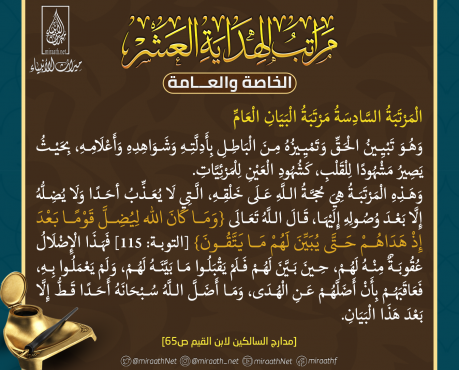 مراتب الهداية العشر
miraath.net
ميراث الأنبياء
الخاصة والعـــامة
الْمَرْتَبَةُ السَّادِسَةُ مَرْتَبَةُ الْبَيَانِ الْعَامِّ
وَهُوَ تَبْيِينُ الْحَقِّ وَتَمْيِيزُهُ مِنَ الْبَاطِلِ بِأَدِلَّتِهِ وَشَوَاهِدِهِ وَأَعْلَامِهِ، بِحَيْثُ
يَصِيرُ مَشْهُودًا لِلْقَلْبِ، كَشُهُودِ الْعَيْنِ لِلْمَرْئِيَّاتِ.
وَهَـذِهِ الْمَرْتَبَـةُ هِيَ حُجَّةُ اللَّهِ عَلَى خَلْقِـهِ، الَّتِي لَا يُعَـذِّبُ أَحَـدًا وَلَا يُضِـلُّهُ
إِلَّا بَعْدَ وُصُولِهِ إِلَيْهَا، قَالَ اللَّهُ تَعَالَى {وَمَا كَانَ اللَّهُ لِيُضِلَّ قَوْمًا بَعْدَ
إِذْ هَدَاهُمْ حَتَّى يُبَيِّنَ لَهُمْ مَا يَتَّقُونَ} [التوبة: 115] فَهَذَا الْإِضْلَالُ
عُقُوبَةٌ مِنْهُ لَهُمْ، حِينَ بَيَّنَ لَهُمْ فَلَمْ يَقْبَلُوا مَا بَيَّنَهُ لَهُمْ، وَلَمْ يَعْمَلُوا بِهِ،
فَعَاقَبَهُمْ بِأَنْ أَضَلَّهُمْ عَنِ الْهُدَى، وَمَا أَضَلَّ اللَّهُ سُبْحَانَهُ أَحَدًا قَطُّ إِلَّا
بَعْدَ هَذَا الْبَيَانِ.
[مدارج السالكين لابن القيم ص65]
@miraathNet @miraath_net miraathNet miraathf